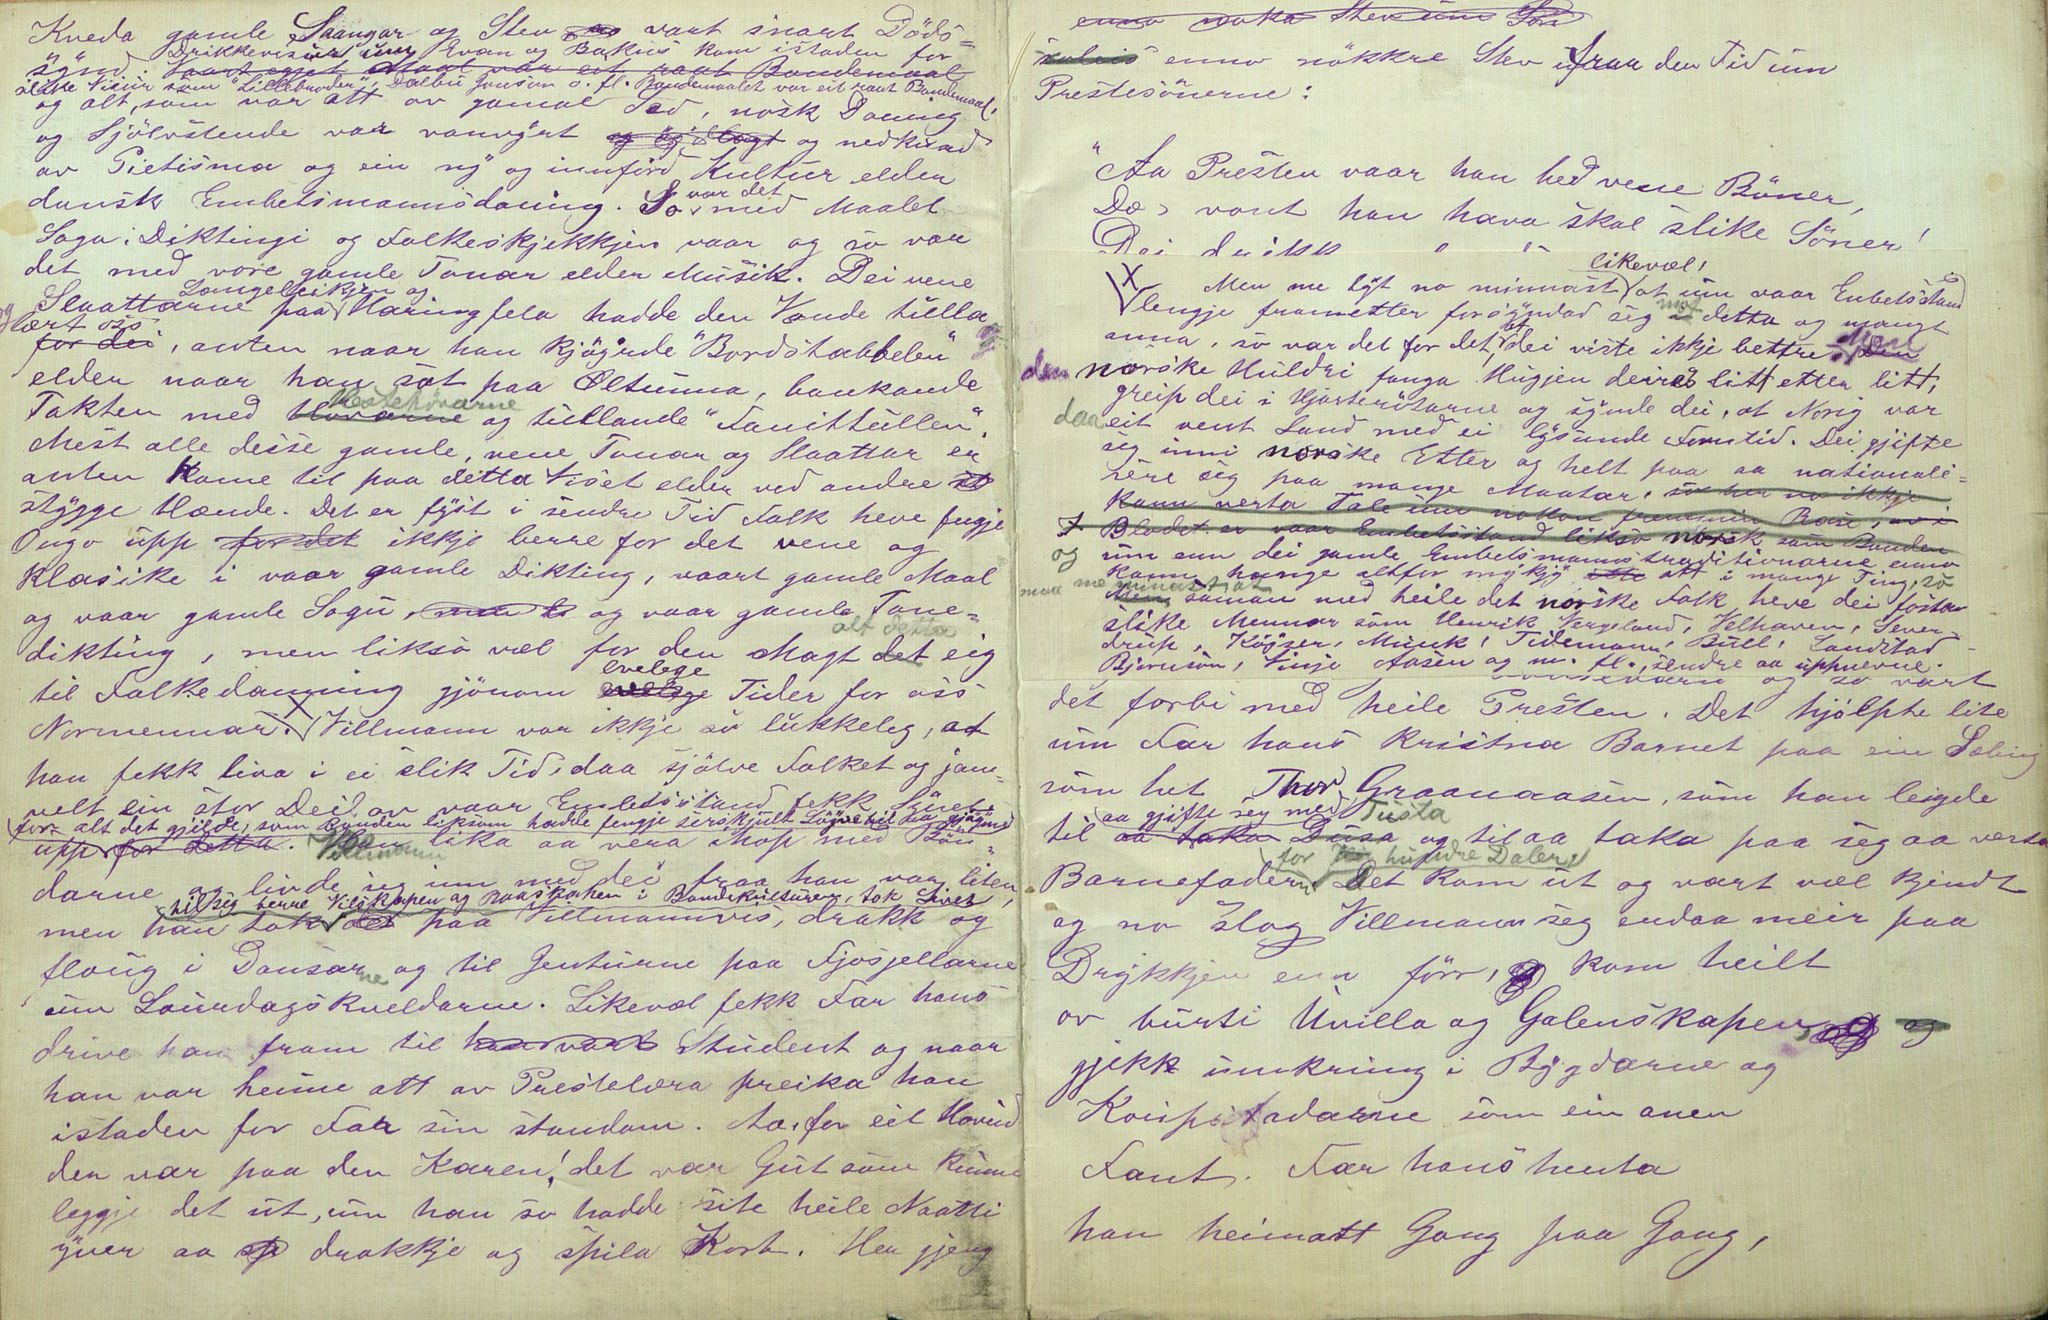 Kveda gamle Saangar og Stev vart snart Dödö-
sÿnd. Drikkevisur um Evan og Bakus kom istaden for
vaart eget Maal var eit raat Bondemaal
slike Visur som "Lillebroder", Dalbu Jonson o. fl. Bondemaalet var eit raat Bondemaal,
og alt, som var att av gamal Sed, norsk Daning
og Sjölvstende var vanvyrt og nedkuad
av Pietisma og ein ny og innförd Kultur elder
dansk Embetsmannsdaning. So var det med Maalet
Soga, Diktingi og Folkeskjekkjen vaar og so var
det med vore gamle Tonar elder Musik. Dei vene
Langeleikjen og
Slaattarne paa Haringfela hadde den Vonde tulla
lært oss
for dei, anten naar han kjöyrde "Bordstabbelen"
elder naar han sat paa Öltunna, bankande
Hestehovarne
Takten med Hovarne og tullande "Fanitullen".
Mest alle desse gamle, vene Tonar og Slaattar er
anten kome til paa detta Viset elder ved andre
stygge Hende. Det er fyst i sendre Tid Folk heve fengje
Ougo upp for det ikkje berre for det vene og
klasiske i vaar gamle Dikting, vaart gamle Maal
og vaar gamle Sogu, og vaar gamle Tone-
alt detta
dikting, men likso vel for den Magt det eig
evelege
til Folkedanning gjönom Tider for oss
Normennar. X Villmann var ikkje so lukkeleg, at
han fekk liva i ei slik Tid, daa sjölve Folket og jam-
velt ein stor Deil av vaar Embetsstand fekk Synet
for alt det gjilde, som Bonden liksom hadde fengje serskjult Löyve til aa gjöyma
upp for detta. Villmann lika aa vera ihop med Bön-
darne og livde seg inn med dei fraa han var liten,
til seg berre Villskapen og Raaskapen i Bondekulturen, tok Livet
men han tok det paa Villmannvis, drakk og
floug i Dansarne og til Genturne paa Fjosjellarne
um Laurdagskveldarne. Likevel fekk Far hans
drive han fram til han vart Student og naar
han var heime att av Prestelæra preika han
istaden for Far sin stondom. Aa, for eit Hovud
den var paa den Karen! det var Gut som kunne
leggje det ut, um han so hadde site heile Naatti
yver aa drakkje og spila Kort. Hen gjeng
enno noka Stev um Son
enno nökkre Stev fraa den Tid um
Prestesönerne:
"Aa Presten vaar han hed vene Böner,
Da vont han hava skal slike Söner!
Dei drikk " "
likevel!
X Men me lyt no minnast at um vaar Embetsstand
lengje frametter forsyndad seg mot detta og mangt
anna, so var det for det, at dei viste ikkje betre. Men
den norske Huldri fanga Hugjen deires litt etter litt,
greip dei i Hjarterötarne og synde dei, at Norig var
daa eit vent Land med ei lysande Framtid. Dei gjifte
seg inni norske Etter og helt paa aa nationali-
sere seg paa mange Maatar, so her no ikkje
kann verta Tale um nokon fremmin Rase, av i
Blodet er vaar Embetsstand likso norsk som Bonden
og um enn dei gamle Embetsmannstraditionarne enno
kann hange altfor mykje att i mange Ting, so
maa me minnast at
Men saman med heile det norske Folk heve dei fostra
slike Mennar som Henrik Vergeland, Velhaven, Sver-
drup, Köyser, Munk, Tidemann, Bull, Landstad
Bjornson, Vinje Aasen og m. fl., sendre aa uppnevne.
og so vart
det forbi med heile Presten. Det hjolpte lite
um Far hans kristna Barnet paa ein Sebing
som het Thor Graanaasen, som han leigde
aa gjifte seg med Tusta
til aa taka Dusa og til aa taka paa seg aa verta
for hundre Daler
Barnefadern. Det kom ut og vart vel kjendt
og no slog Villmann seg endaa meir paa
Drykkjen enn förr, kom heilt
av burti Uvilla og Galenskapen og
gjikk umkring i Bygdarne og
som ein anen
Fant. Far hans henta
han heimatt Gong paa Gong,